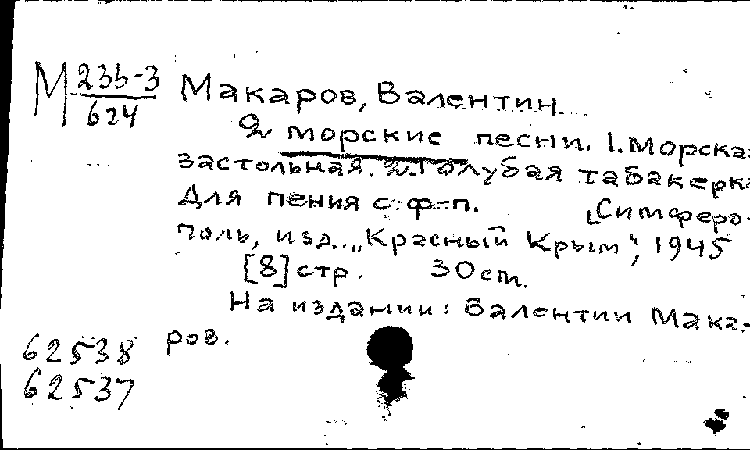 М 23б-3 Макаров, Валентин.
624
2 морские песни. 1. Морская
застольная. 2. Голубая табакерка
Для пения с ф-п. [Симферо-
поль, изд. „Красный Крым“, 1945
[8] стр. 30 cm.
На издании: Валентин Мака-
62538 ров.
62537